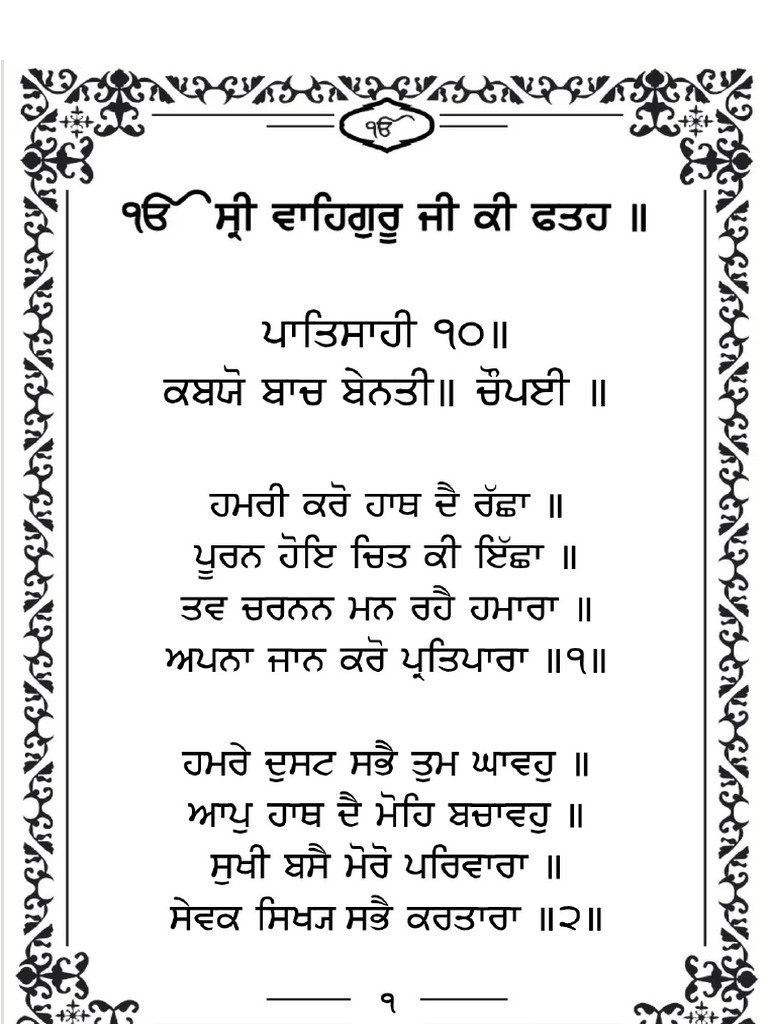 ੴ
ੴ ਸ੍ਰੀ ਵਾਹਿਗੁਰੂ ਜੀ ਕੀ ਫਤਹ ॥
ਪਾਤਿਸਾਹੀ ੧੦॥
ਕਬਯੋ ਬਾਚ ਬੇਨਤੀ॥ ਚੌਪਈ ॥
ਹਮਰੀ ਕਰੋ ਹਾਥ ਦੈ ਰੱਛਾ ॥
ਪੂਰਨ ਹੋਇ ਚਿਤ ਕੀ ਇੱਛਾ ॥
ਤਵ ਚਰਨਨ ਮਨ ਰਹੈ ਹਮਾਰਾ ॥
ਅਪਨਾ ਜਾਨ ਕਰੋ ਪ੍ਰਤਿਪਾਰਾ ॥੧॥
ਹਮਰੇ ਦੁਸਟ ਸਭੈ ਤੁਮ ਘਾਵਹੁ ॥
ਆਪੁ ਹਾਥ ਦੈ ਮੋਹਿ ਬਚਾਵਹੁ ॥
ਸੁਖੀ ਬਸੈ ਮੋਰੋ ਪਰਿਵਾਰਾ ॥
ਸੇਵਕ ਸਿਖੵ ਸਭੈ ਕਰਤਾਰਾ ॥੨॥
੧